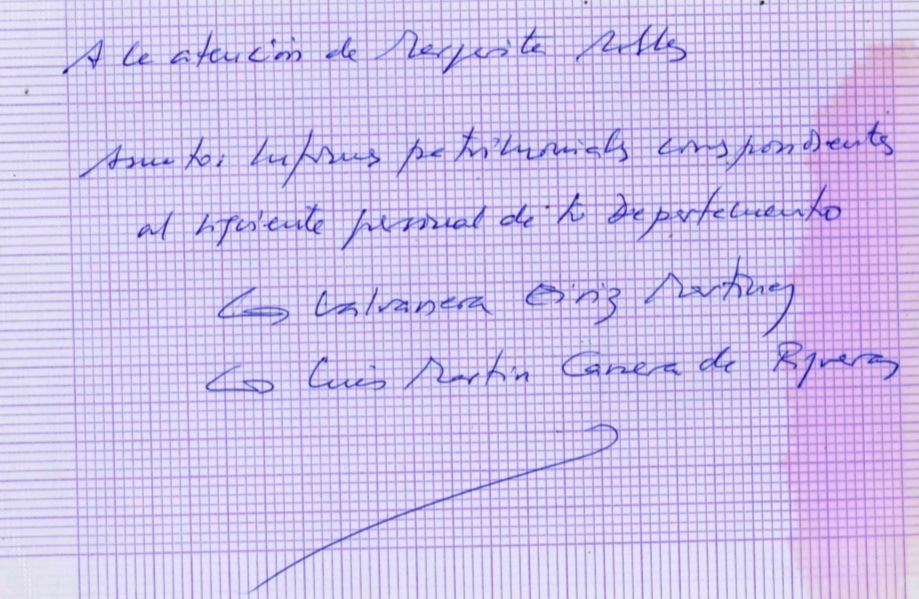 A la atención de Margarita Robles
Asunto: Informes patrimoniales correspondientes
al siguiente personal de tu Departamento
Valvanera Eiriz Martinez
Luis Martin Carrera de